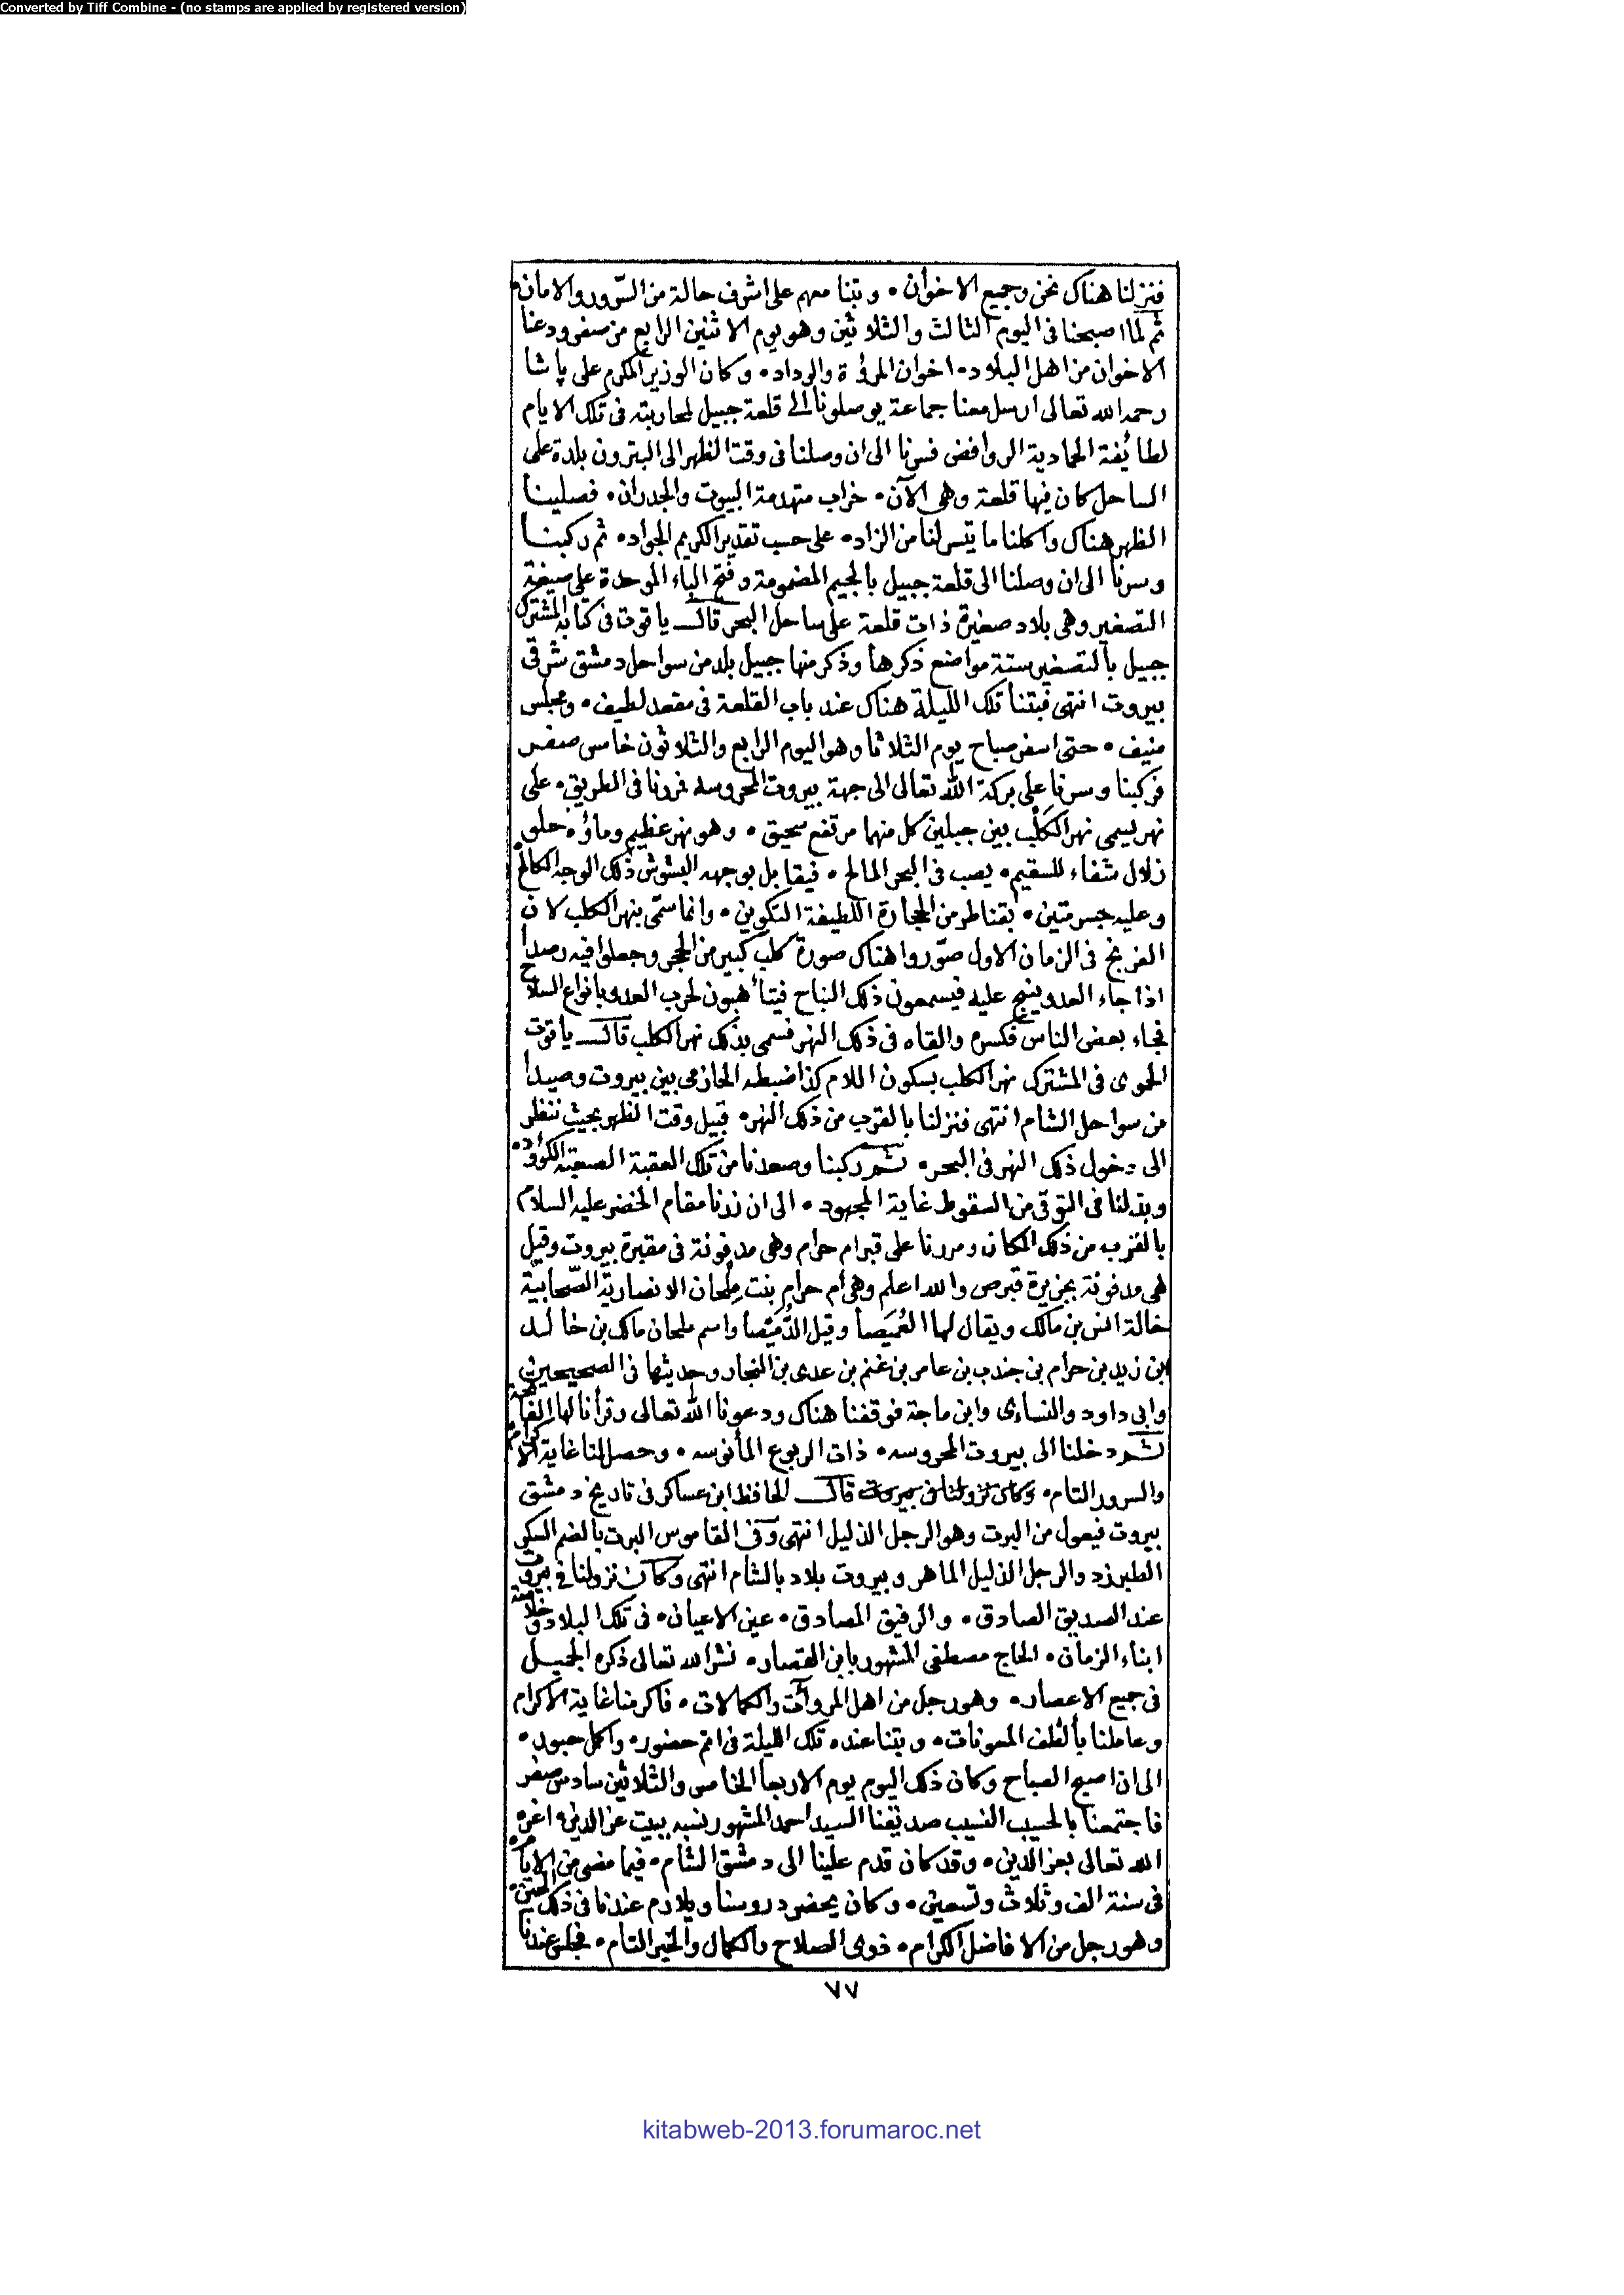 Converted by Tiff Combine - (no stamps are applied by registered version)
فنزلنا هناك نحن وجميع الاخوان • وبتنا معهم على اشرف حالة من السّرور والامان •
ثم لما اصبحنا فى اليوم الثالث والثلاثين وهو يوم الاثنين الرابع من صفر ودعنا
الاخوان من اهل البلاد • اخوان المروءة والوداد • وكان الوزير المكرم على پاشا
رحمه الله تعالى ارسل معنا جماعة يوصلونا الى قلعة جبيل لمحاربته فى تلك الايام
لطائفة الحمادية الروافض فسرنا الى ان وصلنا فى وقت الظهر الى البترون بلدة على
الساحل كان فيها قلعة وهى الآن • خراب متهدمة البيوت والجدران • فصلينا
الظهر هناك واكلنا ما يتسر لنا من الزاد • على حسب تقدير الكريم الجواد • ثم ركبنا
وسرنا الى ان وصلنا الى قلعة جبيل بالجيم المضمومة وفتح الباء الموحدة على صيغة
التصغير وهى بلاد صغيرة ذات قلعة على ساحل البحر قال ياقوت فى كتابه المشترك
جبيل بالتصغير ستة مواضع ذكرها وذكر منها جبيل بلد من سواحل دمشق شرقى
بيروت انتهى فبتنا تلك الليلة هناك عند باب القلعة فى مقعد لطيف • ومجلس
منيف • حتى اسفر صباح يوم الثلاثا وهو اليوم الرابع والثلاثون خامس صفر
فركبنا وسرنا على بركة الله تعالى الى جهة بيروت المحروسه فمررنا فى الطريق • على
نهر يسمى نهر الكَلْب بين جبلين كل منهما مرتفع سحيق • وهو نهر عظيم وماؤه حلو
زلال شفاء للسقيم • يصب فى البحر المالح • فيقابل بوجهه البشوش ذلك الوجه الكالح
وعليه جسر متين • بقناطر من الحجارة اللطيفة التكوين • وانما سمّى بنهر الكلب لان
الفرنج فى الزمان الاول صوّروا هناك صورة كلب كبير من الحجر وجعلوا فيه رصدا
اذا جاء العدو ينبح عليه فيسمعون ذلك النباح فيتأهبون لحرب العدو بانواع السلاح
فجاء بعض الناس فكسره والقاه فى ذلك النهر فسمى بذلك نهر الكلب قال ياقوت
الحموى فى المشترك نهر الكلب بسكون اللام كذا ضبطه الحازمى بين بيروت وصيدا
من سواحل الشام انتهى فنزلنا بالقرب من ذلك النهر • قبيل وقت الظهر بحيث ننظر
الى دخول ذلك النهر فى البحر • ثم ركبنا وصعدنا من تلك العقبة الصعبة الكؤود •
وبذلنا فى التوقى من السقوط غاية المجهود • الى ان زرنا مقام الخضر عليه السلام
بالقرب من ذلك المكان ومررنا على قبر ام حرام وهى مدفونة فى مقبرة بيروت وقيل
هى مدفونة بجزيرة قبرص والله اعلم وهى ام حرام بنت مِلحان الانصارية الصّحابيّة
خالة انس بن مالك ويقال لها الغُمَيصا وقيل الرُّمَيْصا واسم ملحان مالك بن خالد
ابن زيد بن حرام بن جندب بن عامر بن غنم بن عدى بن النجار وحديثها فى الصحيحين
وابى داود والنساءى وابن ماجة فوقفنا هناك ودعونا الله تعالى وقرأنا لها الفاتحة
ثم دخلنا الى بيروت المحروسه • ذات الربوع المأنوسه • وحصل لنا غاية الاكرام
والسرور التام • وكان نزولنا فى بيروت قال الحافظ ابن عساكر فى تاريخ دمشق
بيروت فيعول من البرت وهو الرجل الذليل انتهى وفى القاموس البرت بالضم السكر
الطبرزد والرجل الذليل الماهر وبيروت بلاد بالشام انتهى وكان نزولنا فى بيروت
عند الصديق الصادق • والرفيق المصادق • عين الاعيان • فى تلك البلاد وخلاصة
ابناء الزمان • الحاج مصطفى المشهور بابن القصار • نشر الله تعالى ذكره الجميل
فى جميع الاعصار • وهو رجل من اهل المروآت والكمالات • فاكرمنا غاية الاكرام
وعاملنا بألطف المعونات • وبتنا عنده تلك الليلة فى اتم حضور • واكمل حبور •
الى ان اصبح الصباح وكان ذلك اليوم يوم الاربعا الخامس والثلاثين سادس صفر
فاجتمعنا بالحسيب النسيب صديقنا السيد احمد المشهور نسبه ببيت عز الدين • اعزه
الله تعالى بعز الدين • وقد كان قدم علينا الى دمشق الشام • فيما مضى من الايام •
فى سنة الف وثلاث وتسعين • وكان يحضر دروسنا ويلازم عندنا فى ذلك الحين •
وهو رجل من الافاضل الكرام • ذوى الصلاح والكمال والخير التام • فجلس عندنا
٧٧
kitabweb-2013.forumaroc.net